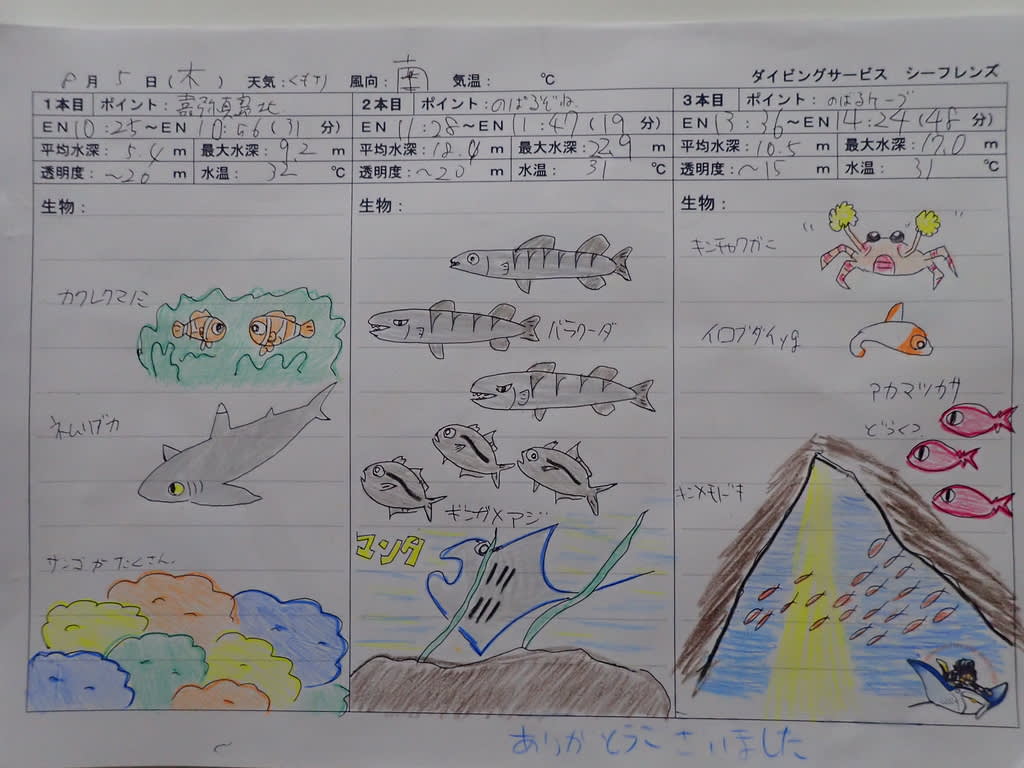 8月5日(木) 天気:くもり 風向:南 気温: ℃ ダイビングサービス シーフレンズ
1本目 ポイント:嘉弥真島北
EN 10:25～EN 10:56(31分)
平均水深:5.4m 最大水深:9.2m
透明度:～20m 水温:32℃
生物:
カクレクマノミ
ネムリブカ
サンゴがたくさん
2本目 ポイント:のばるぞね
EN 11:28～EN 11:47(19分)
平均水深:18.4m 最大水深:22.9m
透明度:～20m 水温:31℃
生物:
バラクーダ
ギンガメアジ
マンタ
3本目 ポイント:のばるケーブ
EN 13:36～EN 14:24(48分)
平均水深:10.5m 最大水深:17.0m
透明度:～15m 水温:31℃
生物:
キンチャクガニ
イロブダイyg
アカマツカサ
どうくつ
キンメモドキ
ありがとうございました